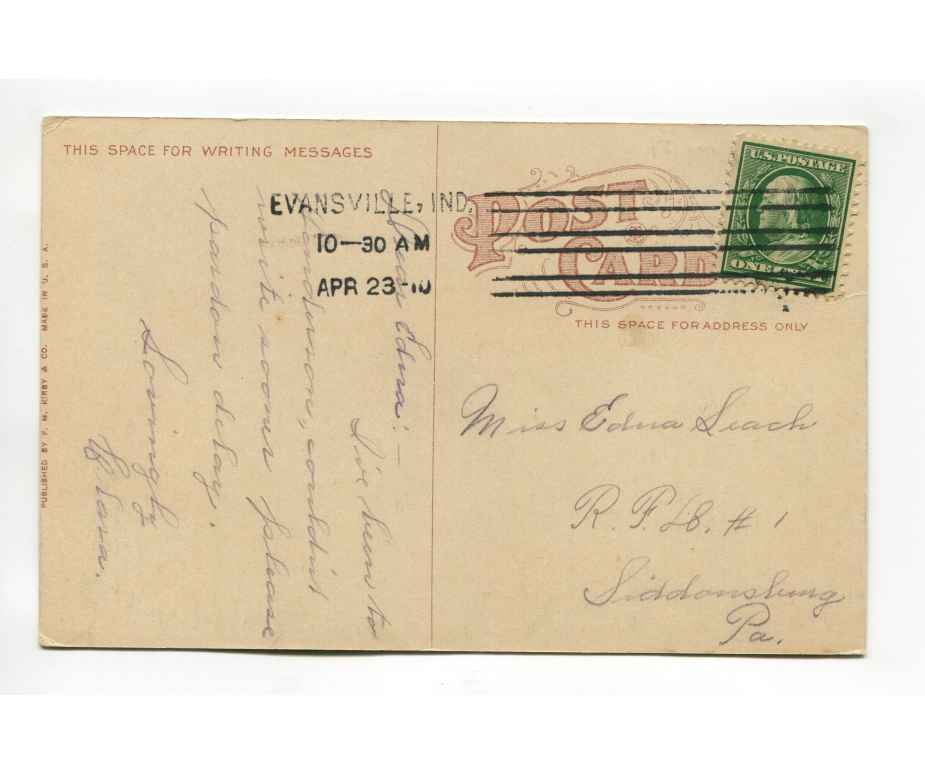 THIS SPACE FOR WRITING MESSAGES
EVANSVILLE, IND.
10-30 AM
APR 23-10
POST
CARD
U.S. POSTAGE
ONE CENT
THIS SPACE FOR ADDRESS ONLY
Dear Edna:-
I've been to
Henderson, couldint
write sooner please
pardon delay.
Lovingly
Clara.
Miss Edna Leach
R. F. D. # 1
Siddonsburg
Pa.
PUBLISHED BY F. M. KIRBY & CO. MADE IN U. S. A.